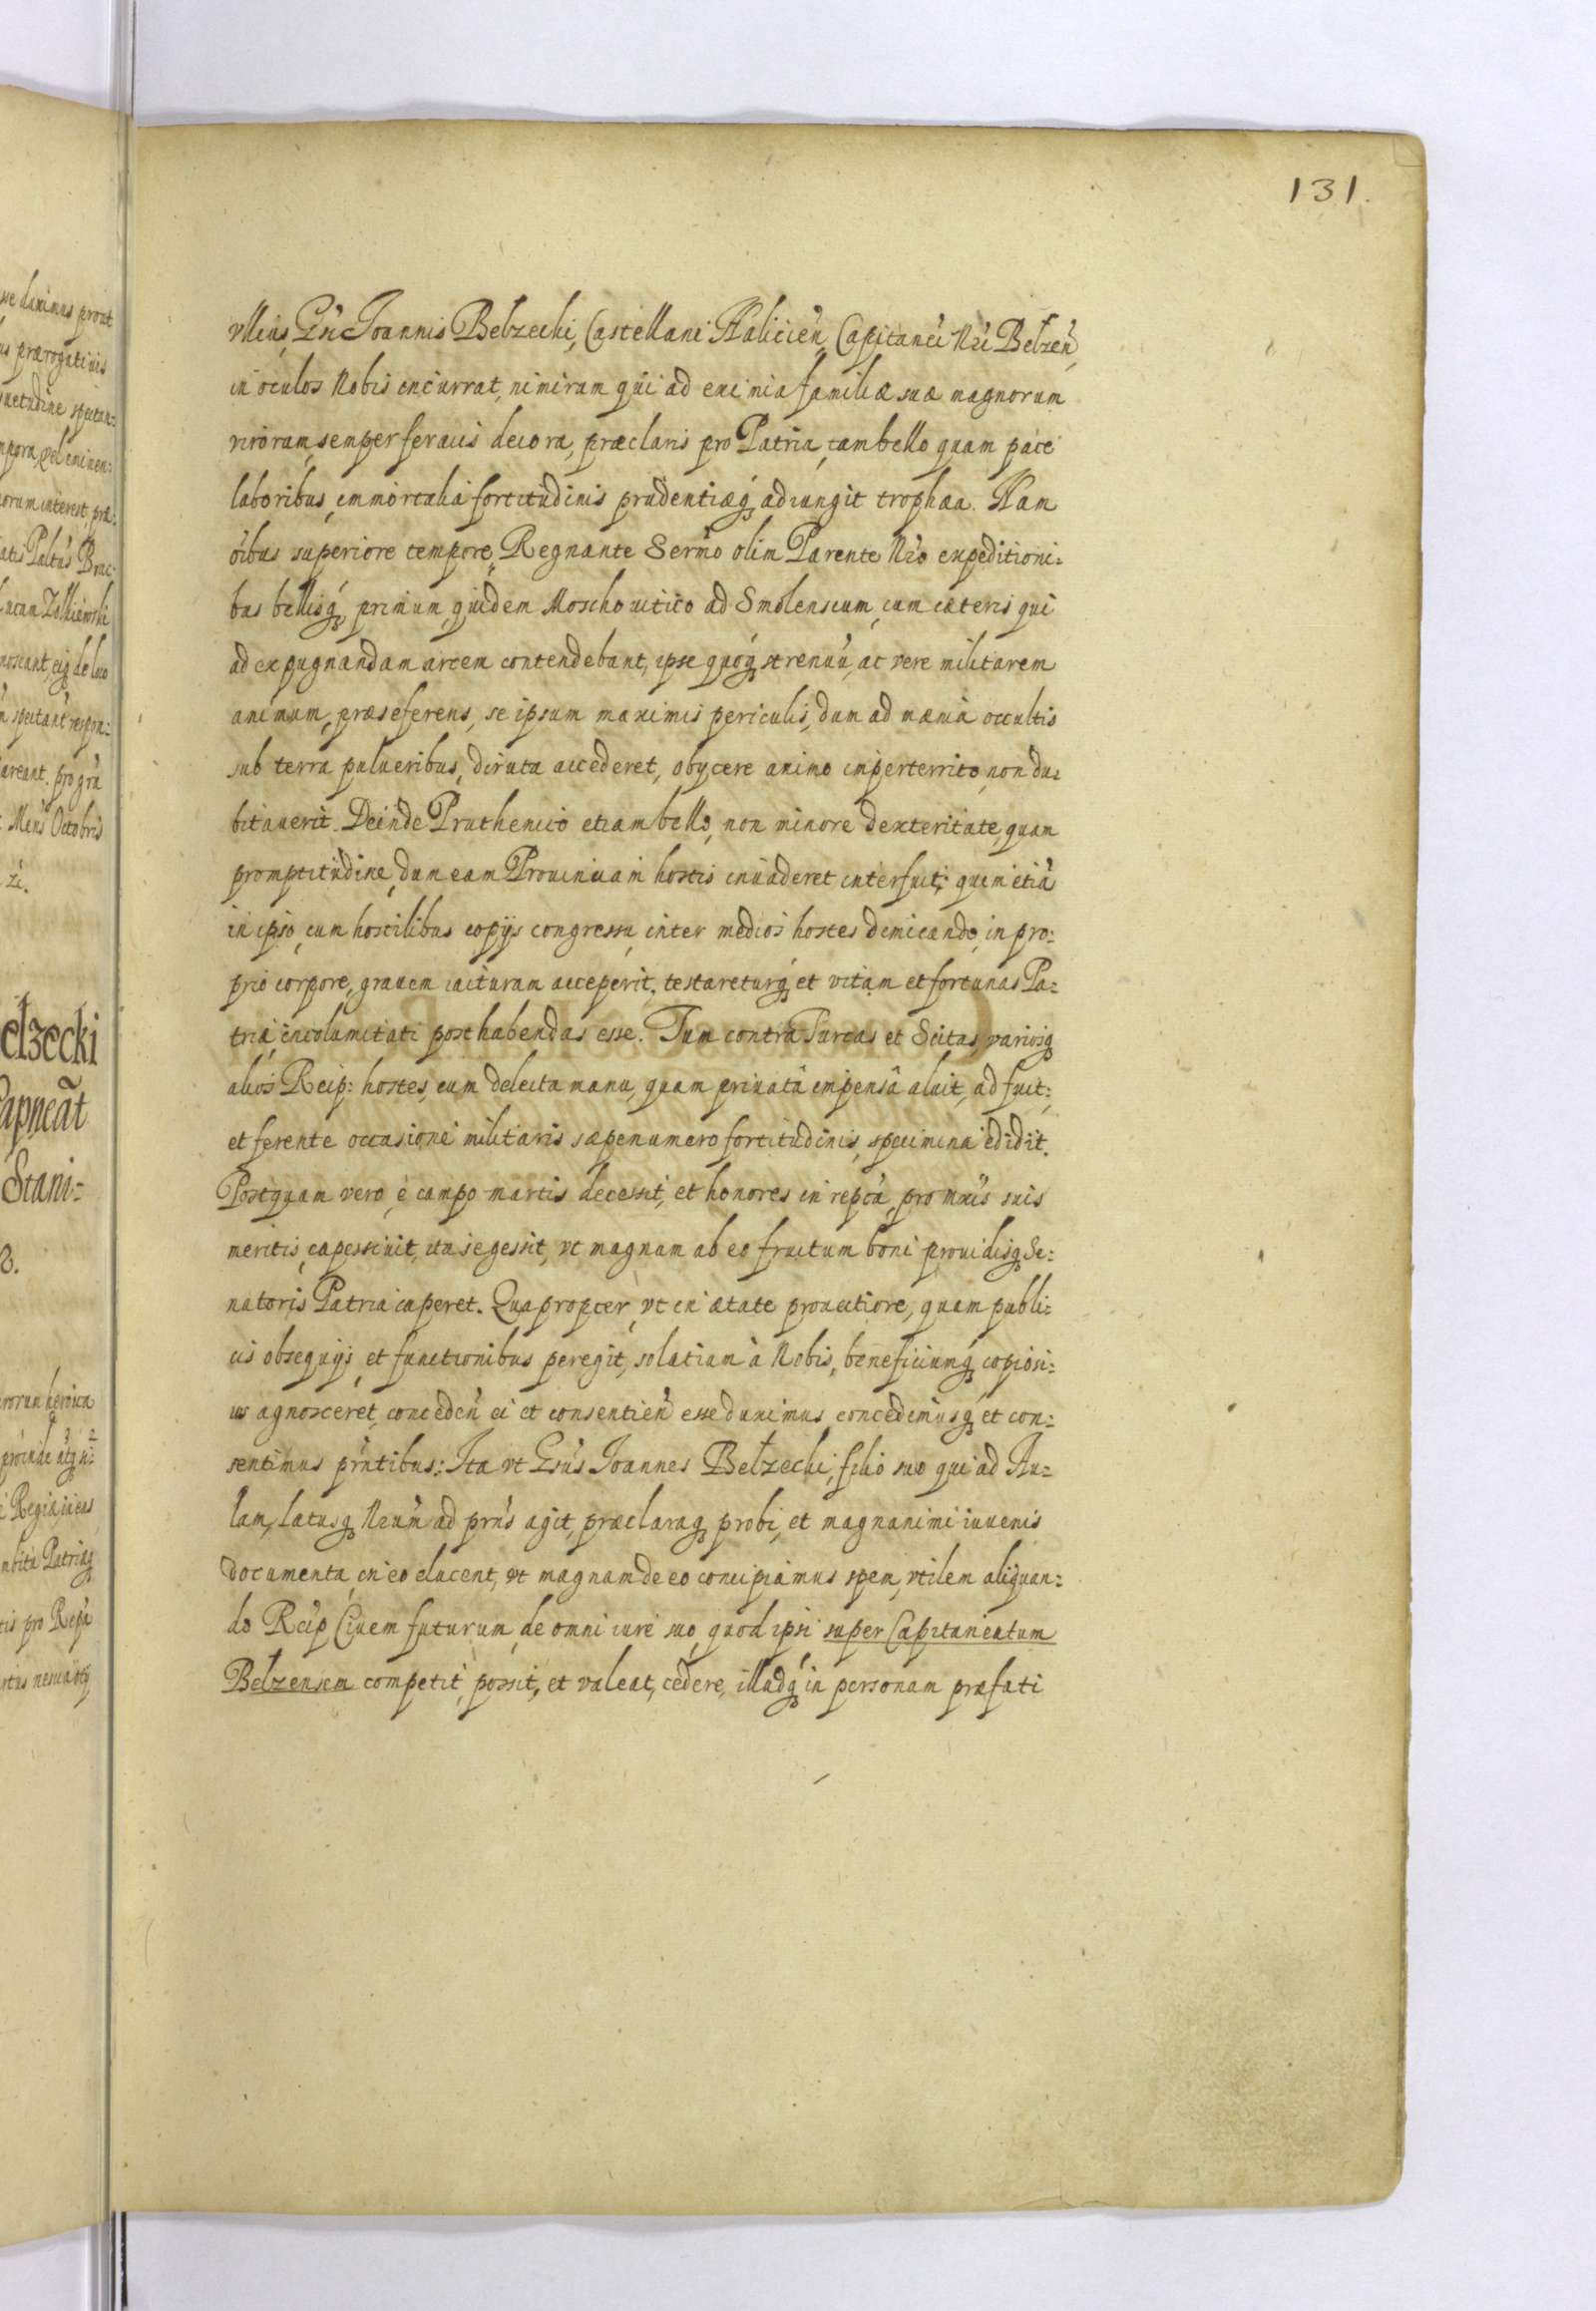 131.
vllius, Gsi Joannis Bełzecki, Castellani Halicień, Capitanei Nri Bełzeń,
in oculos Nobis incurrat, nimirum qui ad eximia familiæ suæ magnorum
virorum, semper feracis decora, præclaris pro Patria, tam bello quam pace
laboribus, immortalia fortitudinis prudentiæq́ adiungit trophæa. Nam
oibus superiore tempore, Regnante Sermo olim Parente Nro expeditioni:
bus bellisq́, primum, quidem Moschouitico ad Smolenscum, cum cæteris qui
ad expugnandam arcem contendebant, ipse quoq́ strenuū, ac vere militarem
animum, præseferens, se ipsum maximis periculis, dum ad mænia occultis
sub terra pulueribus, diruta accederet, obycere animo imperterrito, non du:
bitauerit. Deinde Pruthenico etiam bello, non minore dexteritate, quam
promptitudine, dum eam Prouinciam hostis inuaderet interfuit; quin etiā
in ipso, cum hostilibus copÿs congressu, inter medios hostes dimicando, in pro:
prio corpore, grauem iacturam acceperit, testareturq́ et vitam et fortunas Pa:
triæ incolumitati posthabendas esse. Tum contra Turcas et Scitas, variosq́
alios Reip: hostes, cum delecta manu, quam priuatâ impensâ aluit, adfuit;
et ferente occasione militaris sæpenumero fortitudinis, specimina edidit.
Postquam vero, è campo martis decessit, et honores in repca, pro mxis suis
meritis, capessiuit, ita se gessit, vt magnam ab eo fructum boni prouidisq́ Se:
natoris Patria caperet. Quapropter, vt in ætate prouectiore, quam publi:
cis obsequÿs, et functionibus peregit, solatium à Nobis, beneficiumq́ copiosi:
us agnosceret, conceden̄ ei et consentien̄ esse duximus, concedimusq́ et con:
sentimus prntibus: Ita vt Gsus Joannes Bełzecki, filio suo qui ad Au:
lam, latusq́ Nrum ad prns agit, præclaraq́ probi, et magnanimi iuuenis
documenta, in eo elucent, vt magnam de eo concipiamus spem, vtilem aliquan:
do Reip Ciuem futurum, de omni iure suo, quod ipsi super Capitaneatum
Bełzensem competit, possit, et valeat, cedere, illudq́ in personam præfati